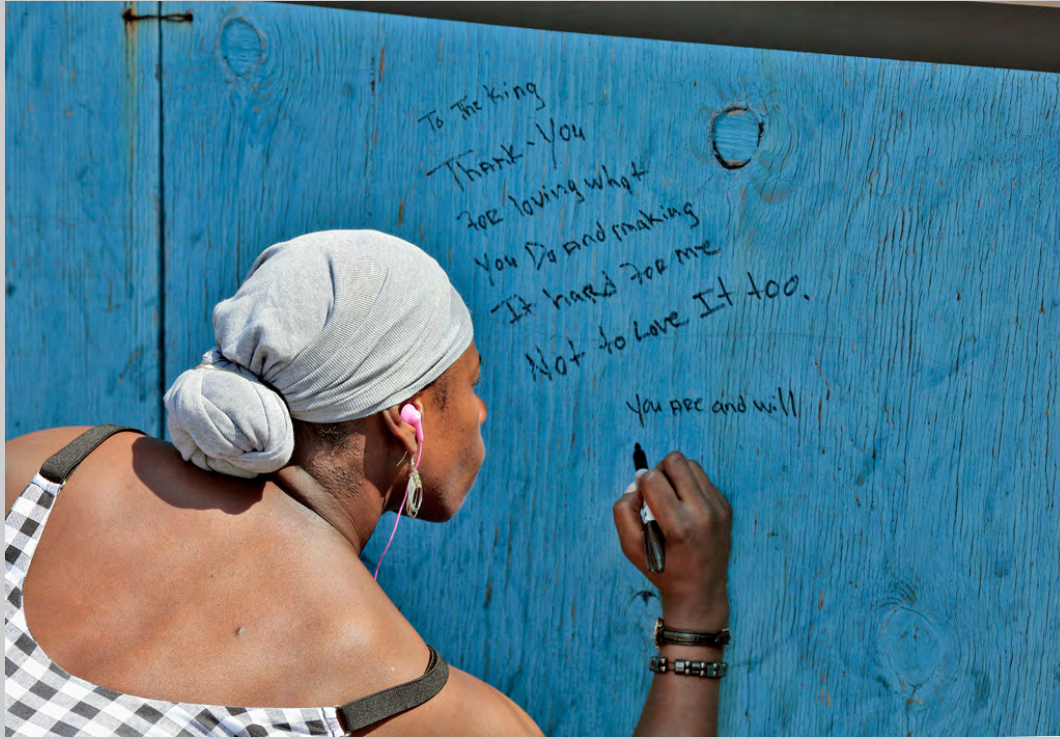 To The King
Thank-You
For loving what
You Do and making
It hard For me
Not to Love It too.
You Are and will